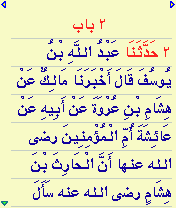 ٢ باب
٢ حَدَّثَنَا عَبْدُ اللَّهِ بْنُ
يُوسُفَ قَالَ أَخْبَرَنَا مَالِكٌ عَنْ
هِشَامِ بْنِ عُرْوَةَ عَنْ أَبِيهِ عَنْ
عَائِشَةَ أُمِّ الْمُؤْمِنِينَ رضى
الله عنها أَنَّ الْحَارِثَ بْنَ
هِشَامٍ رضى الله عنه سَأَلَ